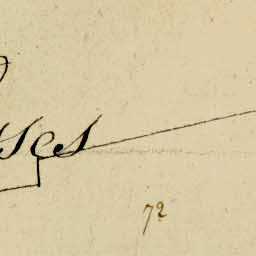 sses
72